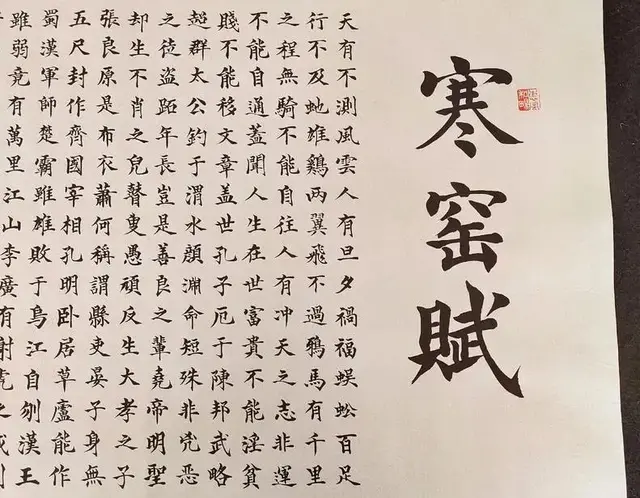 寒窑賦
天有不測風雲人有旦夕禍福蜈蚣百足
行不及虵雄鷄兩翼飛不過鴉馬有千里
之程無騎不能自往人有冲天之志非運
不能自通蓋聞人生在世富貴不能淫貧
賤不能移文章盖世孔子厄于陳邦武略
超群太公釣于渭水顏淵命短殊非兇惡
之徒盜距年長豈是善良之輩堯帝明聖
却生不肖之兒瞽叟愚頑反生大孝之子
張良原是布衣蕭何稱謂縣吏晏子身無
五尺封作齊國宰相孔明卧居草廬能作
蜀漢軍師楚霸雖雄敗于烏江自刎漢王
雖弱竟有萬里江山李廣有射虎之